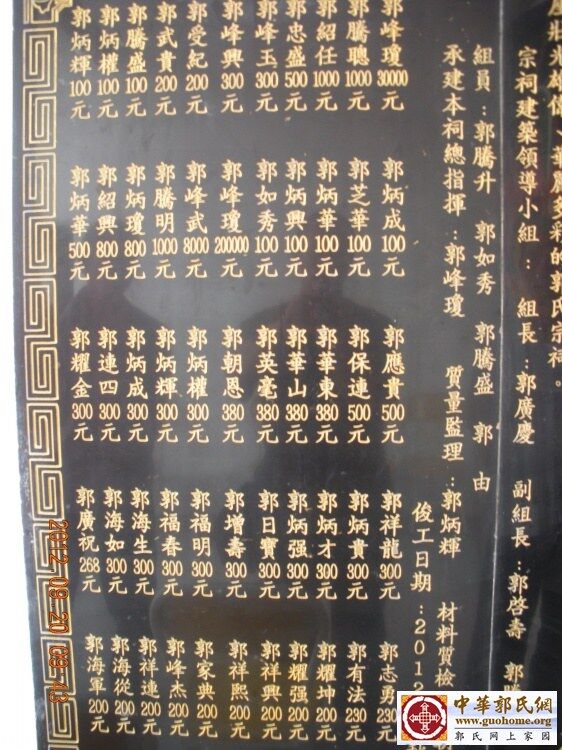 宗祠建築領導小組：組長：郭廣慶 副組長：郭啓壽
組員：郭騰升 郭如秀 郭騰盛 郭由
承建本祠總指揮：郭峰瓊 質量監理：郭炳輝 材料質檢
俊工日期：2012
郭峰瓊30000元
郭騰聰1000元
郭紹任1000元
郭忠盛500元
郭峰玉300元
郭峰興300元
郭受紀200元
郭武貴200元
郭騰盛100元
郭炳權100元
郭炳輝100元
郭炳成100元
郭芝華100元
郭炳華100元
郭炳興100元
郭如秀100元
郭峰瓊200000元
郭峰武8000元
郭騰明1000元
郭炳瓊800元
郭紹興800元
郭炳華500元
郭應貴500元
郭保連500元
郭華東380元
郭華山380元
郭英毫380元
郭朝恩380元
郭炳權300元
郭炳輝300元
郭炳成300元
郭連四300元
郭耀金300元
郭祥龍300元
郭炳貴300元
郭炳才300元
郭炳强300元
郭日寶300元
郭增壽300元
郭福明300元
郭福春300元
郭海生300元
郭海如300元
郭廣祝268元
郭志勇230元
郭有法230元
郭耀坤200元
郭耀强200元
郭祥興200元
郭祥熙200元
郭家典200元
郭峰杰200元
郭祥連200元
郭海從200元
郭海軍200元
2012 09 20 09:43
中華郭氏網
www.guohome.org
郭氏网上家园